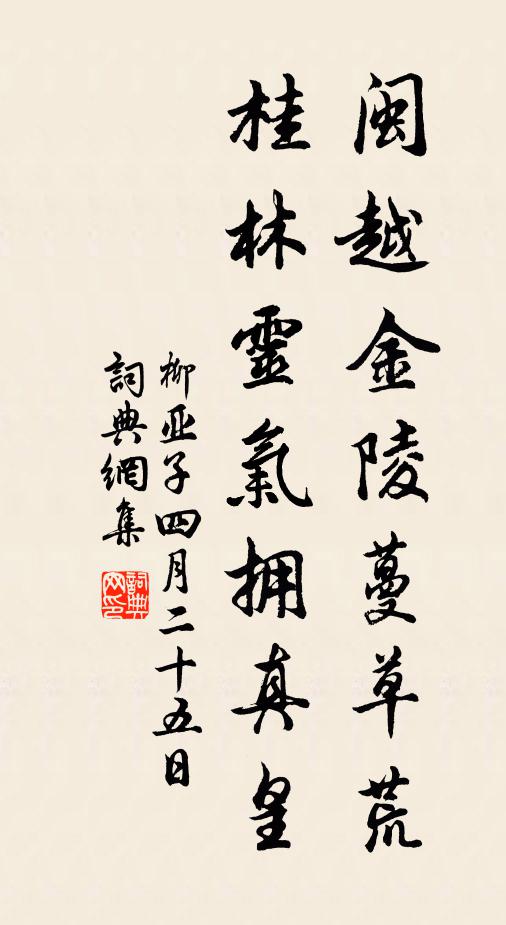 闽越金陵蔓草荒
桂林靈氣拥真皇
柳亚子四月二十五日
詞典網集
詞典網印